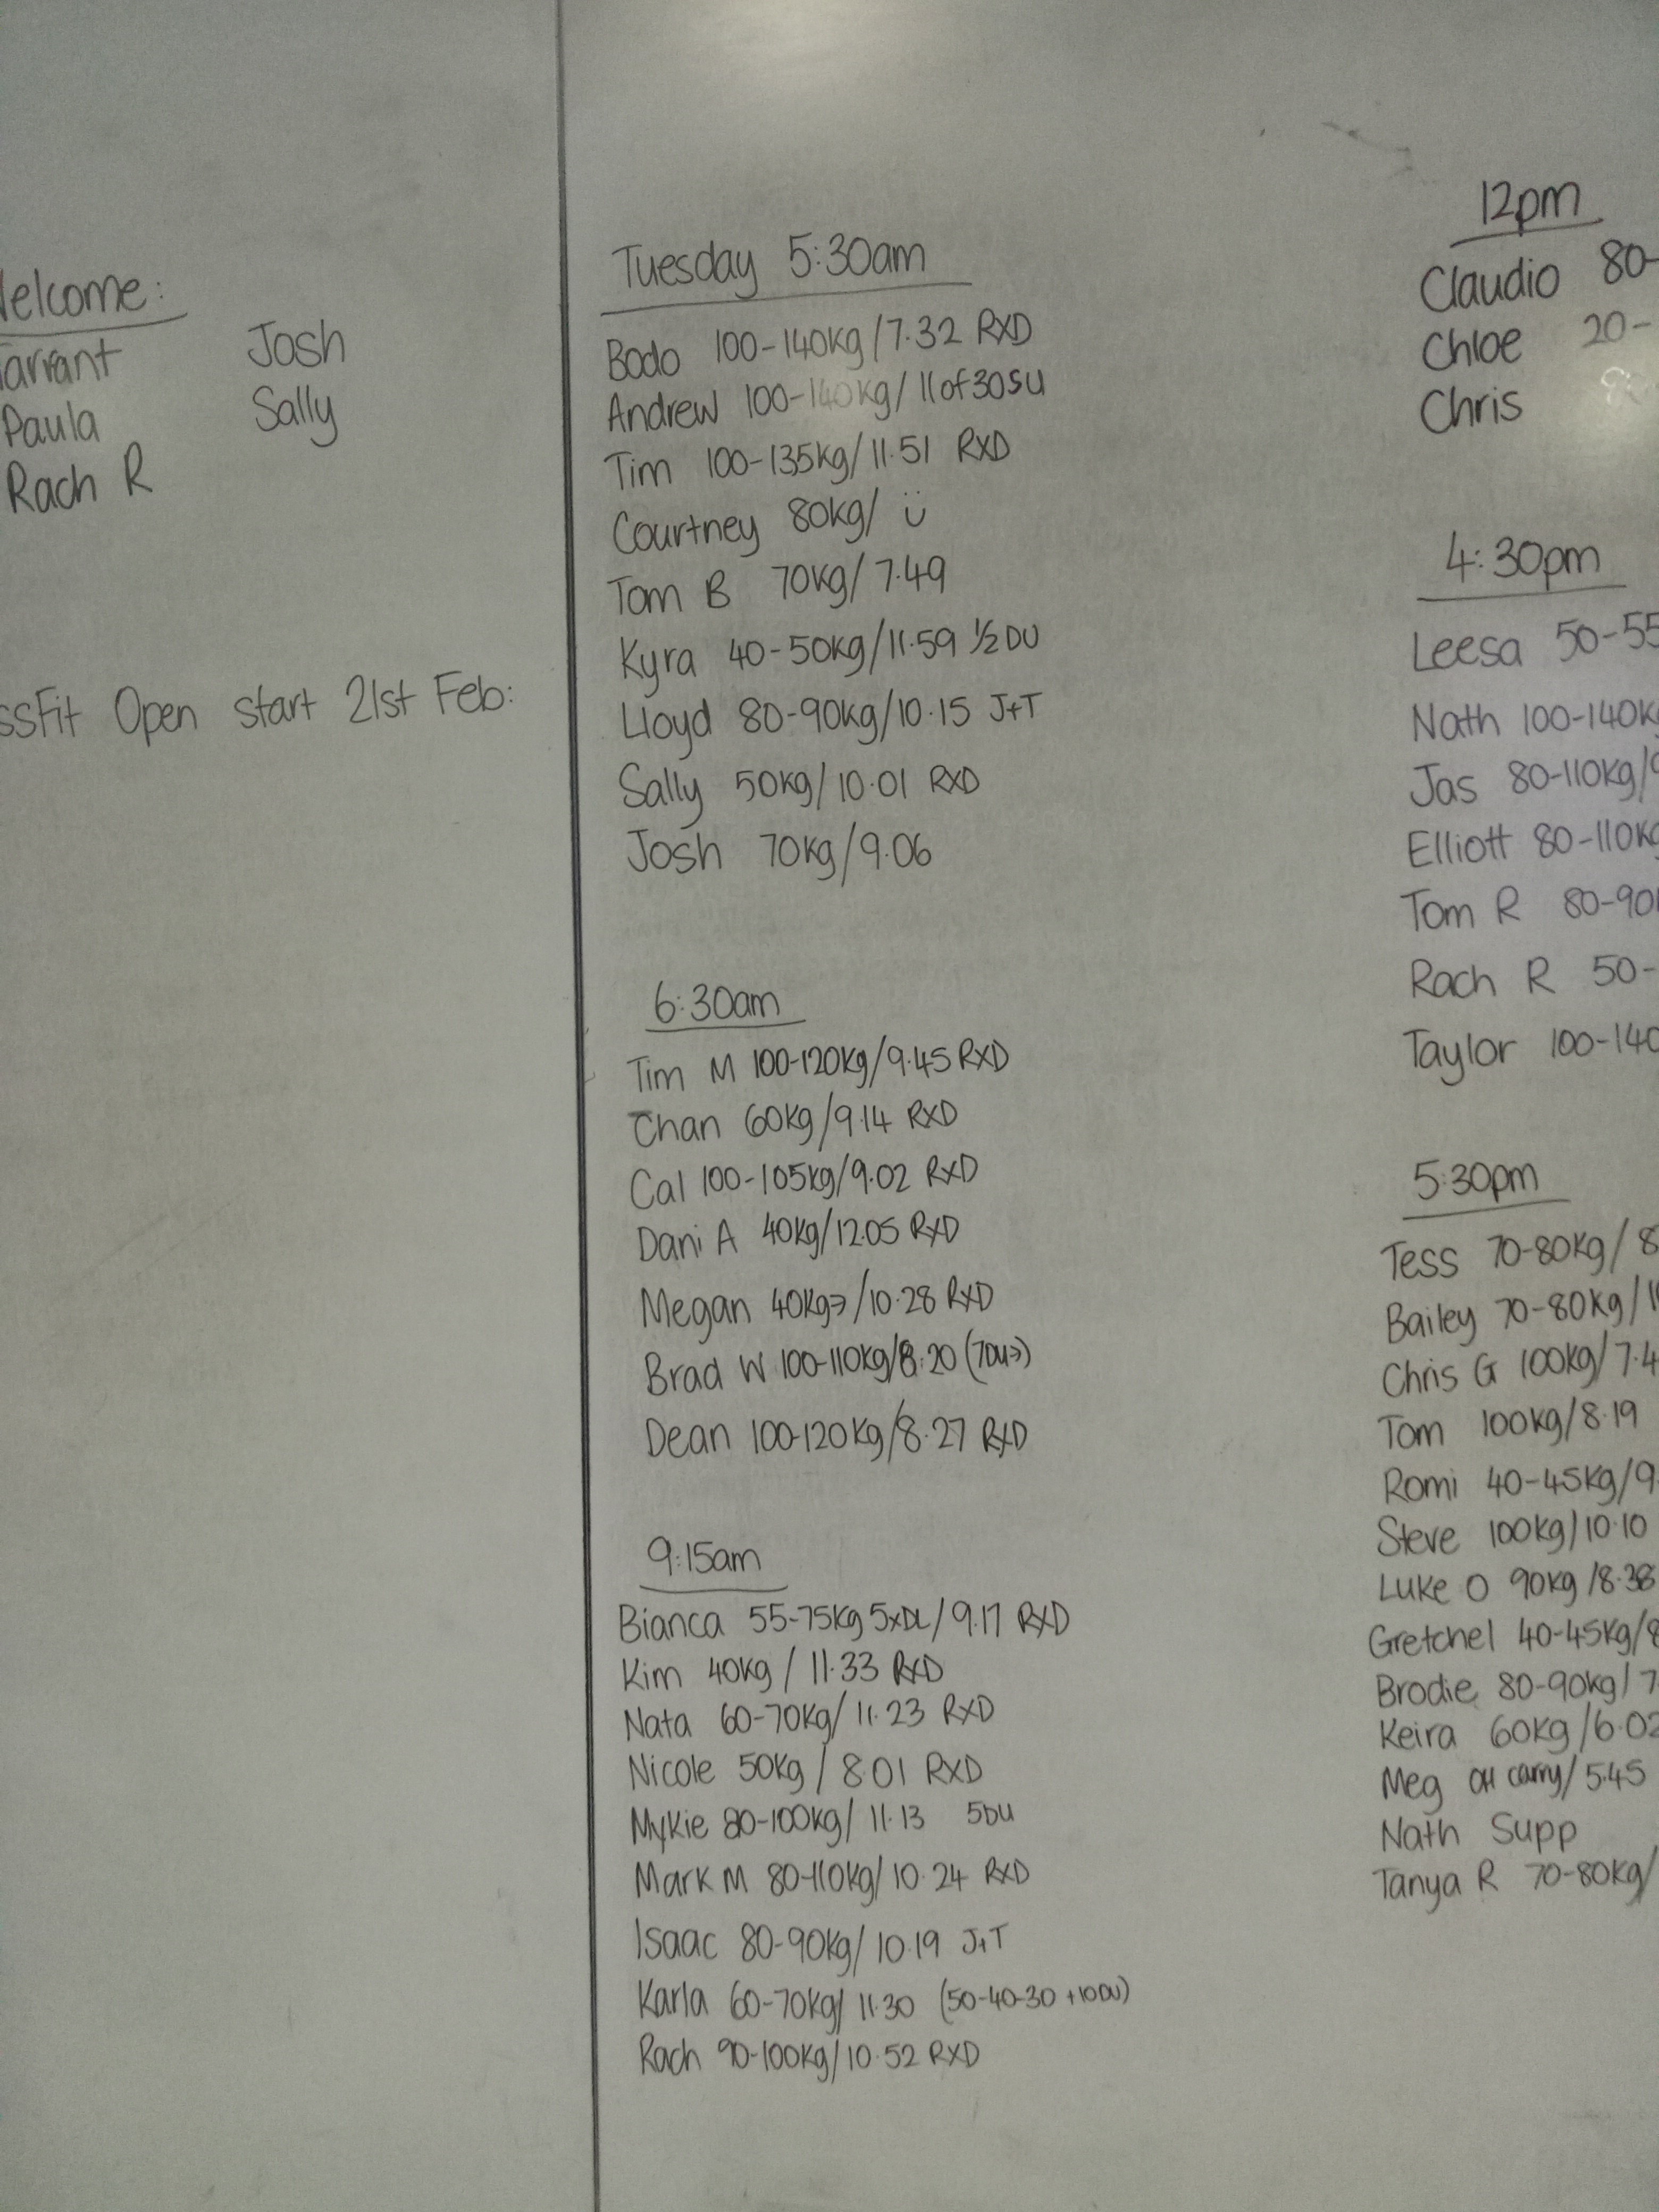 Welcome:
Tarrant Josh
Paula Sally
Rach R
ssFit Open start 21st Feb:
Tuesday 5:30am
Bodo 100-140kg/7.32 RXD
Andrew 100-140kg/11of30SU
Tim 100-135kg/11.51 RXD
Courtney 80kg/ ü
Tom B 70kg/7.49
Kyra 40-50kg/11.59 ½DU
Lloyd 80-90kg/10.15 J+T
Sally 50kg/10.01 RXD
Josh 70kg/9.06
6:30am
Tim M 100-120kg/9.45 RXD
Chan 60kg/9.14 RXD
Cal 100-105kg/9.02 RXD
Dani A 40kg/12.05 RXD
Megan 40kg→/10.28 RXD
Brad W 100-110kg/8.20 (7DU→)
Dean 100-120kg/8.27 RXD
9:15am
Bianca 55-75kg 5xDL/9.17 RXD
Kim 40kg/11.33 RXD
Nata 60-70kg/11.23 RXD
Nicole 50kg/8.01 RXD
Mykie 80-100kg/11.13 5DU
Mark M 80-110kg/10.24 RXD
Isaac 80-90kg/10.19 J+T
Karla 60-70kg/11.30 (50-40-30 +10DU)
Rach 90-100kg/10.52 RXD
12pm
Claudio 80-
Chloe 20-
Chris
4:30pm
Leesa 50-55
Nath 100-140k
Jas 80-110kg/9
Elliott 80-110kg
Tom R 80-90
Rach R 50-
Taylor 100-140
5:30pm
Tess 70-80kg/8
Bailey 70-80kg/1
Chris G 100kg/7.4
Tom 100kg/8.19
Romi 40-45kg/9.
Steve 100kg/10.10
Luke O 90kg/8.38
Gretchel 40-45kg/8
Brodie 80-90kg/7
Keira 60kg/6.02
Meg OH carry/5.45
Nath Supp
Tanya R 70-80kg/